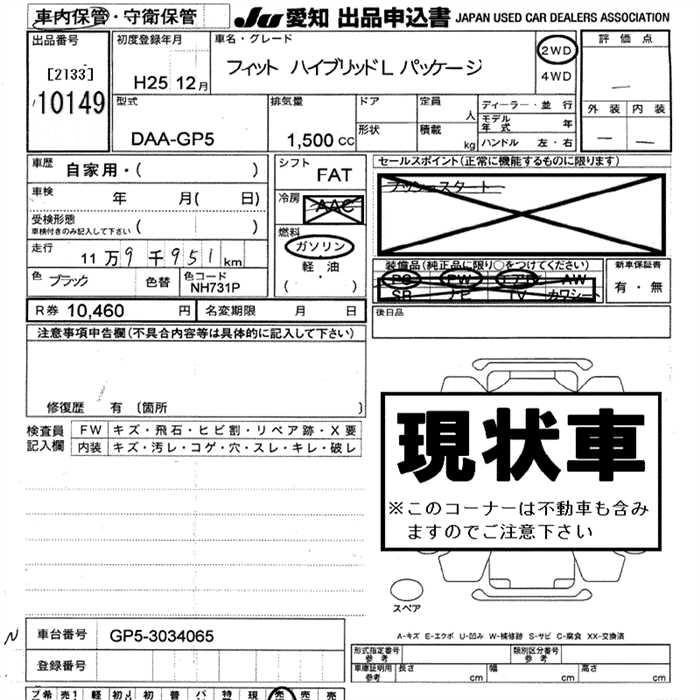 車内保管・守衛保管
JU 愛知 出品申込書 JAPAN USED CAR DEALERS ASSOCIATION
出品番号
[2133]
10149
初度登録年月
H25 12月
車名・グレード
フィット ハイブリッドL パッケージ
2WD
4WD
評価点
外装 内装
型式
DAA-GP5
排気量
1,500 cc
ドア
形状
定員 人
積載 kg
ディーラー・並行
モデル年式 年
ハンドル 左・右
車歴 自家用・( )
車検 年 月( 日)
受検形態 ( )
車検付きのみ記入して下さい
走行 11万9千951km
色 ブラック 色替 色コード NH731P
シフト FAT
冷房 AAC
燃料
ガソリン
軽・油
( )
セールスポイント(正常に機能するものに限ります)
プッシュスタート
装備品(純正品に限り○をつけてください)
PS PW エアB AW
SR ナビ TV カワシート
新車保証書
有・無
R券 10,460 円 名変期限 月 日
後日品
注意事項申告欄(不具合内容等は具体的に記入して下さい)
修復歴 有 [箇所 ]
検査員記入欄
FW キズ・飛石・ヒビ割・リペア跡・X要
内装 キズ・汚レ・コゲ・穴・スレ・キレ・破レ
現状車
※このコーナーは不動車も含み
ますのでご注意下さい
スペア
A-キズ E-エクボ U-凹み W-補修跡 S-サビ C-腐食 XX-交換済
N
車台番号 GP5-3034065
登録番号
形式指定番号
参考
類別区分番号
参考
車庫証明用
参考
長さ cm 幅 cm 高さ cm